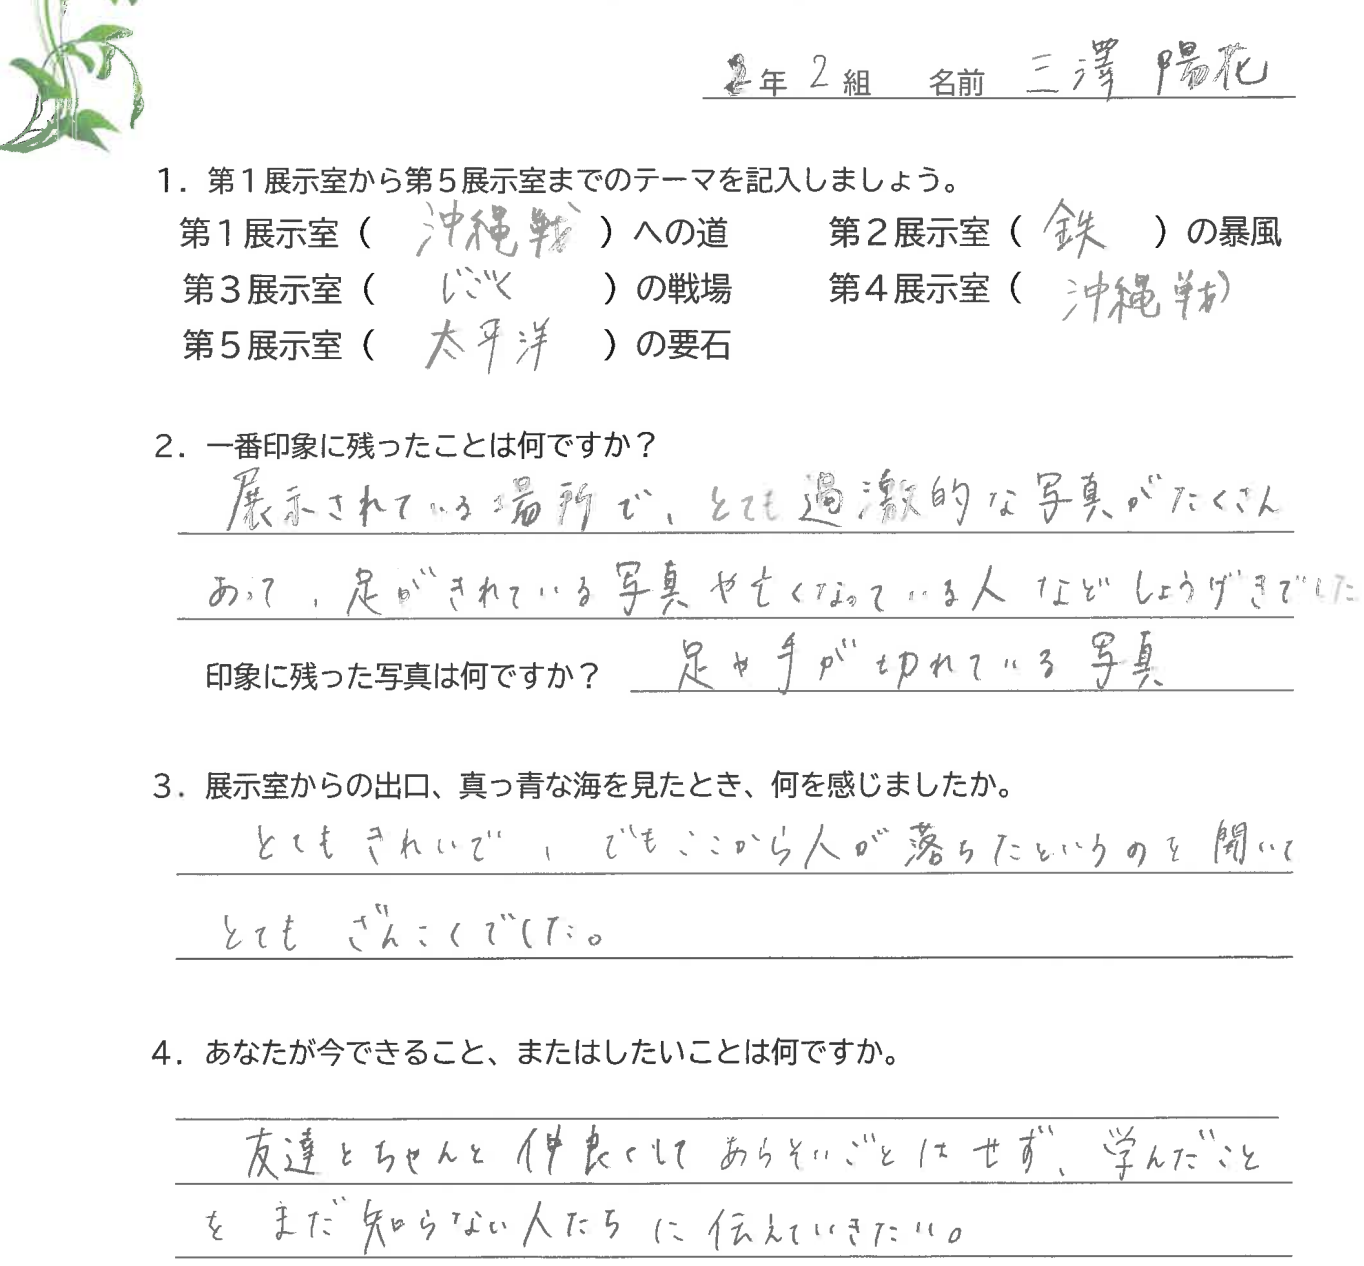 2年 2組 名前 三澤 陽花
1. 第1展示室から第5展示室までのテーマを記入しましょう。
第1展示室( 沖縄戦 )への道 第2展示室( 鉄 )の暴風
第3展示室( じごく )の戦場 第4展示室( 沖縄戦 )
第5展示室( 太平洋 )の要石
2. 一番印象に残ったことは何ですか?
展示されている場所で、とても過激的な写真がたくさん
あって、足がきれている写真や亡くなっている人などしょうげきでした
印象に残った写真は何ですか? 足や手が切れている写真
3. 展示室からの出口、真っ青な海を見たとき、何を感じましたか。
とてもきれいで、でもここから人が落ちたというのを聞いて
とてもざんこくでした。
4. あなたが今できること、またはしたいことは何ですか。
友達とちゃんと仲良くしてあらそいごとはせず、学んだこと
をまだ知らない人たちに伝えていきたい。